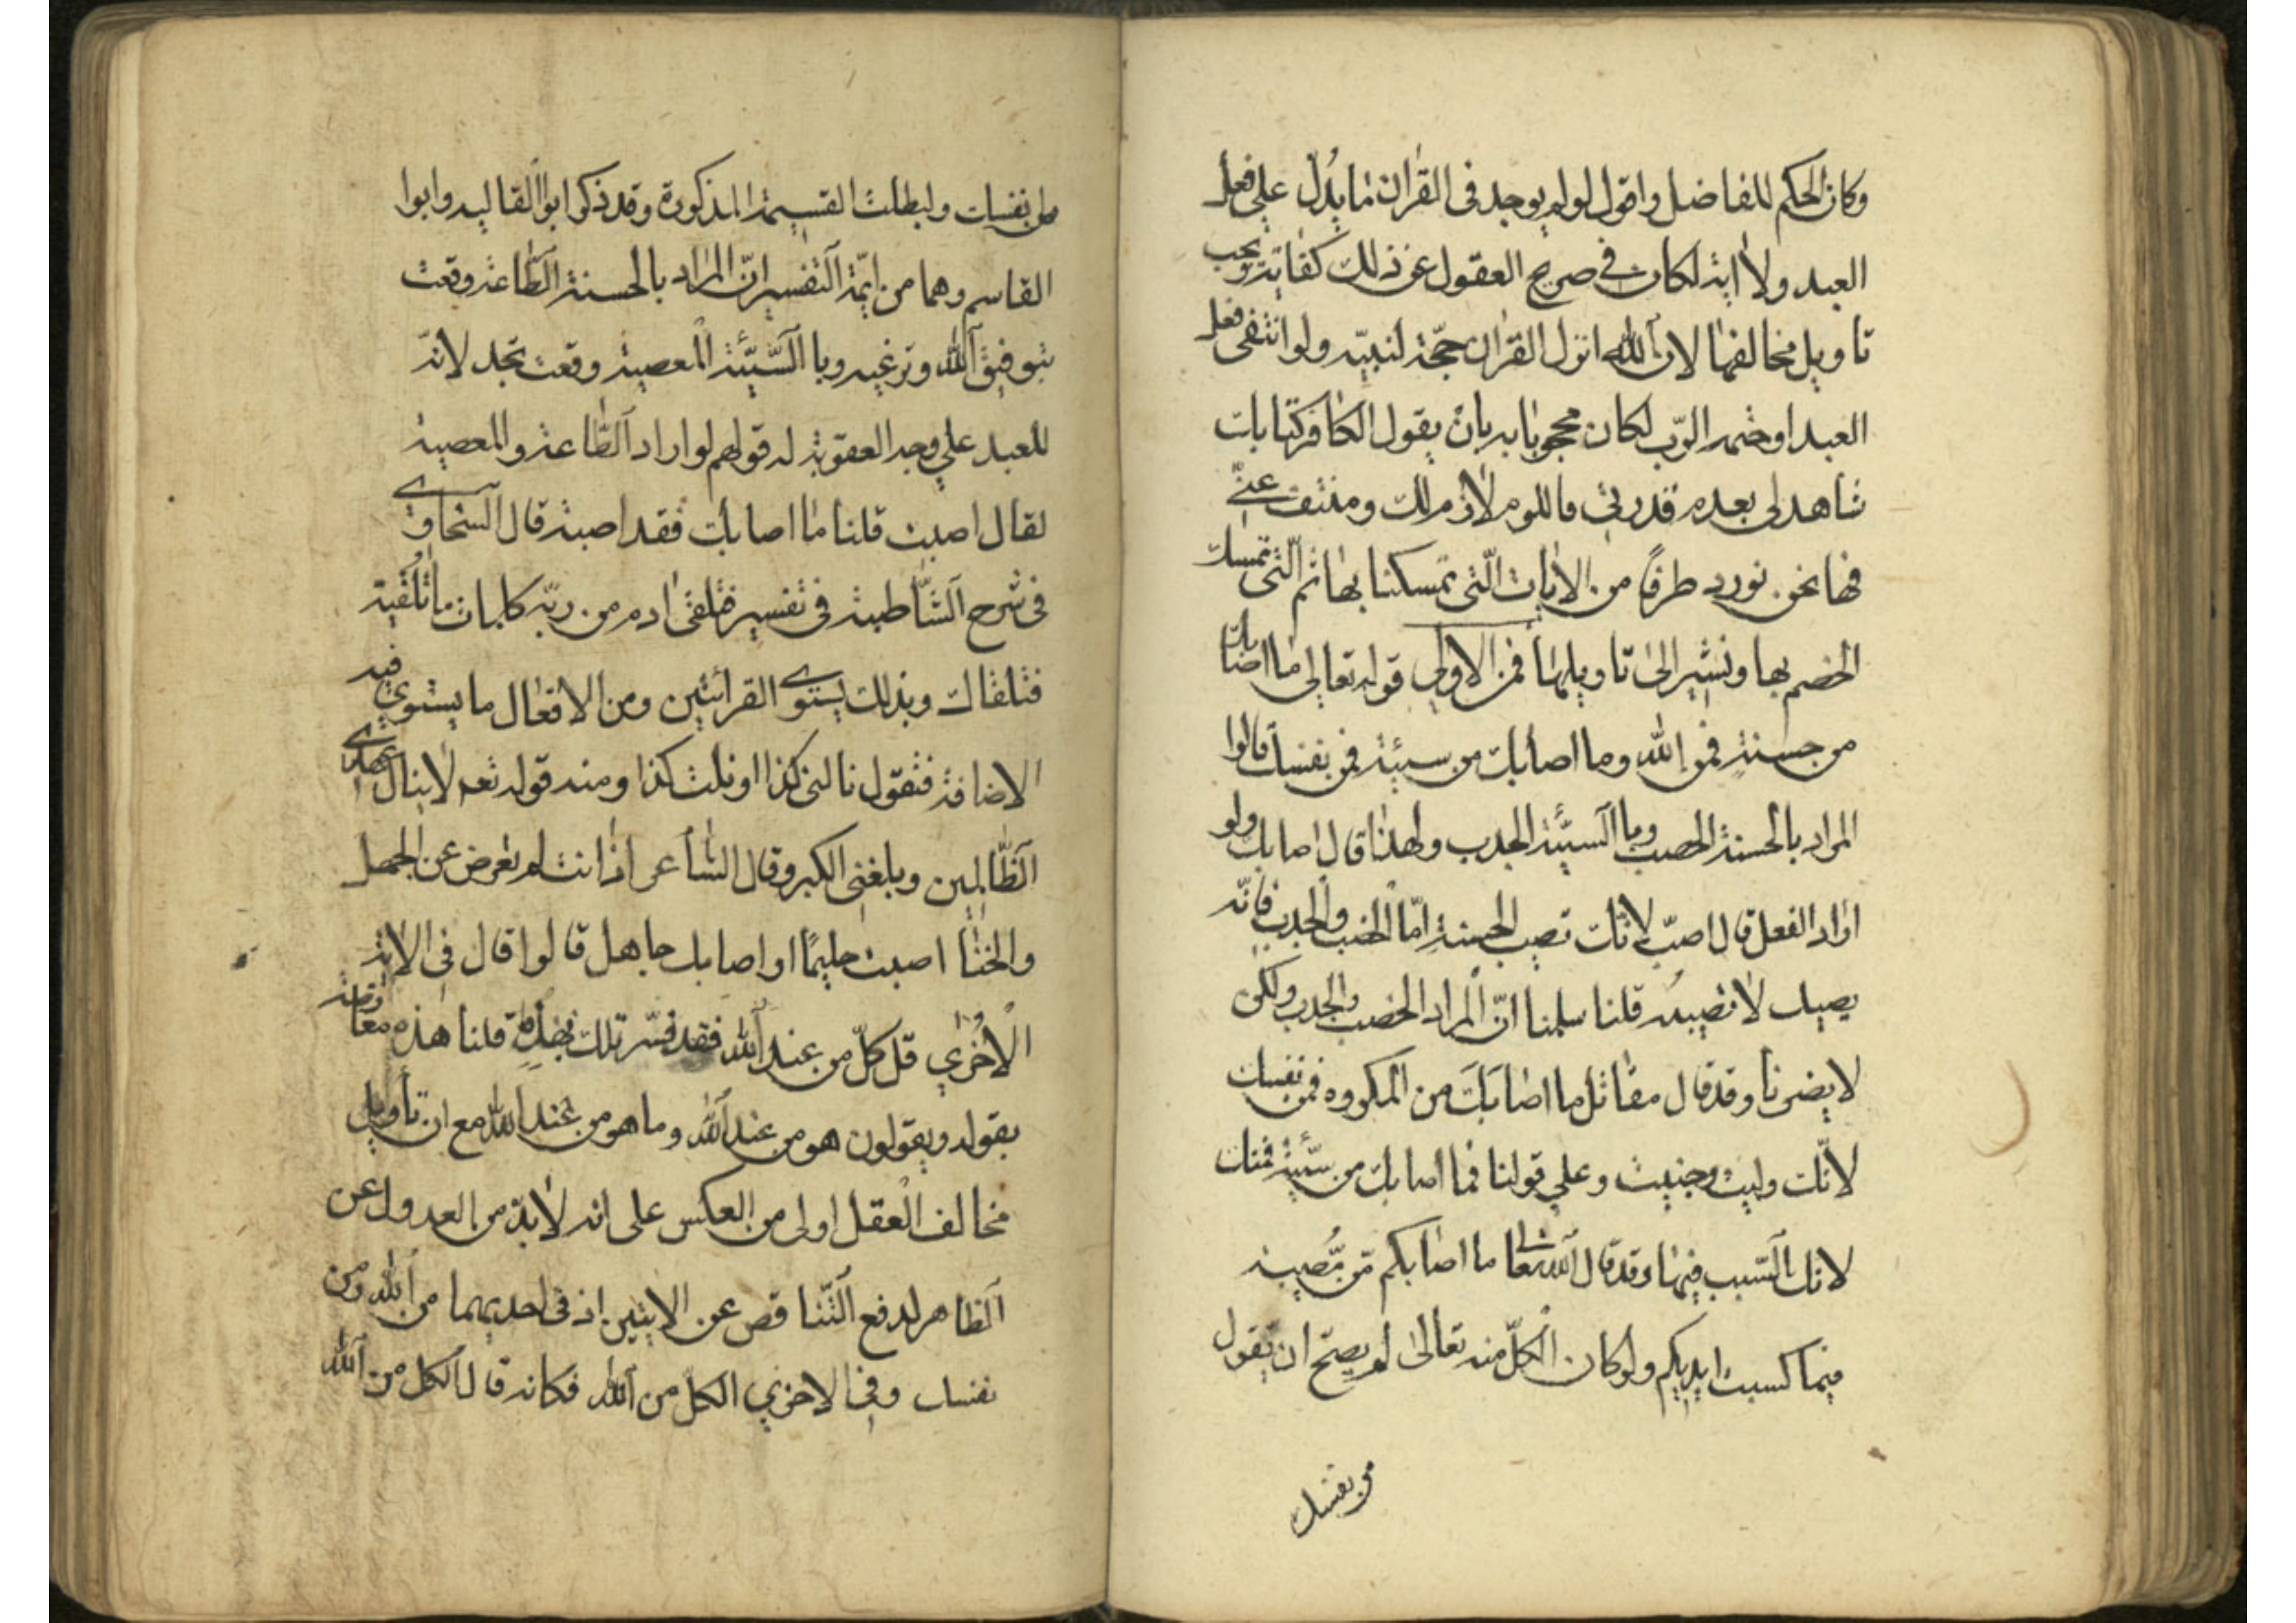 وكان الحكم للفاضل واقول لو لم يوجد فى القرآن ما يدل على فعل
العبد ولا اية لكان فى صريح العقول عن ذلك كفاية ويجب
تاويل مخالفها لان الله انزل القرآن حجة لنبيه ولو انتفى فعل
العبد او ختمه الرب لكان محجوبا به بان يقول الكافر كتابك
شاهد لى بعدم قدرتى فاللوم لازم لك ومنتف عنى
فها نحن نورد طرفا من الايات التى تمسكنا بها ثم التى تمسك
الخصم بها ونشير الى تاويلها فمن الاولى قوله تعالى ما اصابك
من حسنة فمن الله وما اصابك من سيئة فمن نفسك قالوا
المراد بالحسنة الخصب وبا السيئة الجدب ولهذا قال اصابك ولو
اراد الفعل قال اصبت لانك تصيب الحسنة اما الخصب والجدب فانه
يصيبك لا تصيبه قلنا سلمنا ان المراد الخصب والجدب ولكن
لا يضرنا وقد قال مقاتل ما اصابك من المكروه فمن نفسك
لانك وليت وجنيت وعلى قولنا فما اصابك من سيئة فمنك
لانك السبب فيها وقد قال الله تعالى ما اصابكم من مصيبة
فبما كسبت ايديكم ولو كان الكل منه تعالى لم يصح ان يقول
من نفسك
من نفسك ولبطلت القسيمة المذكورة وقد ذكر ابوا القاليه وابوا
القاسم وهما من ايمة التفسير ان المراد بالحسنة الطاعة وقعت
بتوفيق الله وترغيبه وبا السيئة المعصية وقعت بخذلانه
للعبد على وجه العقوبة له قولهم لو اراد الطاعة والمعصية
لقال اصبت قلنا ما اصابك فقد اصبته قال السخاوى
فى شرح الشاطبية فى تفسير فتلقى ادم من ربه كلمات ما تلقيته
فتلقاك وبذلك يستوى القرائتين ومن الافعال ما يستوى فيه
الاضافة فتقول نالنى كذا او نلت كذا ومنه قوله تعم لا ينال عهدى
الظالمين وبلغنى الكبر وقال الشاعر اذا انت لم تعرض عن الجهل
والخنا اصبت حليما او اصابك جاهل قالوا قال فى الاية
الاخرى قل كل من عند الله فقد فسر تلك بهذه قلنا هذه معارضة
بقوله ويقولون هو من عند الله وما هو من عند الله مع ان تأويل
مخالف العقل اولى من العكس على انه لا بد من العدول عن
الظاهر لدفع التناقض عن الايتين اذ فى احديهما من الله ومن
نفسك وفى الاخرى الكل من الله فكانه قال الكل من الله